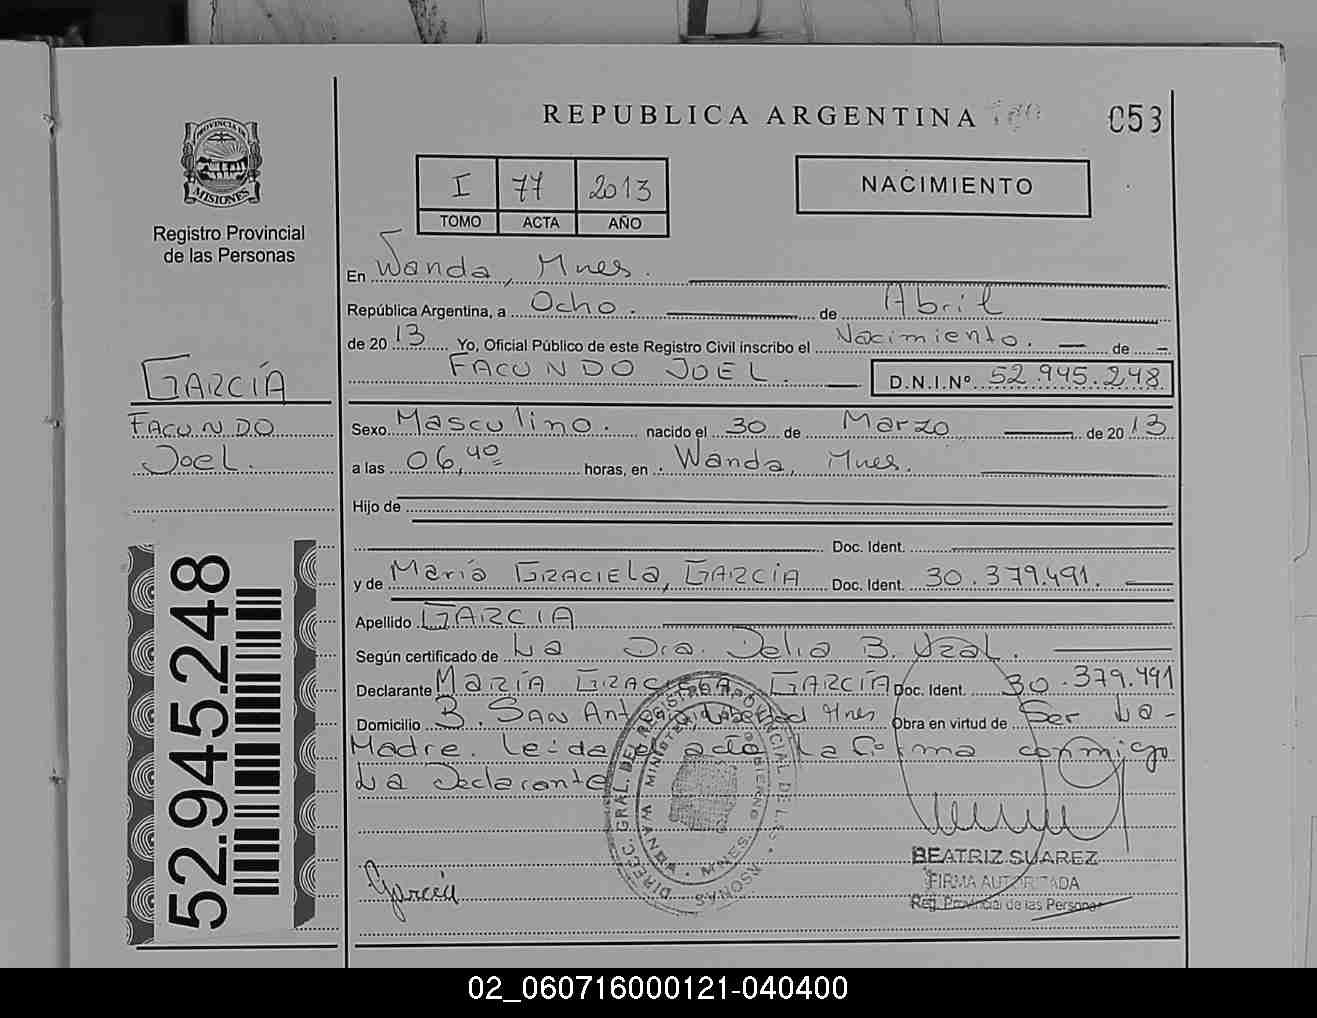 REPUBLICA ARGENTINA
053
PROVINCIA DE
MISIONES
Registro Provincial
de las Personas
I 77 2013
TOMO ACTA AÑO
NACIMIENTO
En Wanda, Mnes.
República Argentina, a Ocho. de Abril
de 20 13 Yo, Oficial Público de este Registro Civil inscribo el Nacimiento. de
FACUNDO JOEL. D.N.I.Nº 52.945.248
GARCÍA
FACUNDO
JOEL.
Sexo Masculino. nacido el 30 de Marzo de 20 13
a las 06,40 horas, en Wanda, Mnes.
Hijo de
Doc. Ident.
y de María GRACIELA, GARCIA Doc. Ident. 30.379.491.
Apellido GARCIA
Según certificado de La Dra. Delia B. Uzal.
Declarante MARÍA GRACIELA GARCÍA Doc. Ident. 30.379.491
Domicilio B. SAN Ant Libertad Mnes Obra en virtud de Ser La-
Madre. Leida acta La firma conmigo
La Declarante
52.945.248
DIREC. GRAL. DEL REGISTRO PROVINCIAL DE LAS PERSONAS
MINISTERIO DE GOBIERNO
WANDA - MNES.
García
BEATRIZ SUAREZ
FIRMA AUTORIZADA
Reg. Provincial de las Personas
02_060716000121-040400